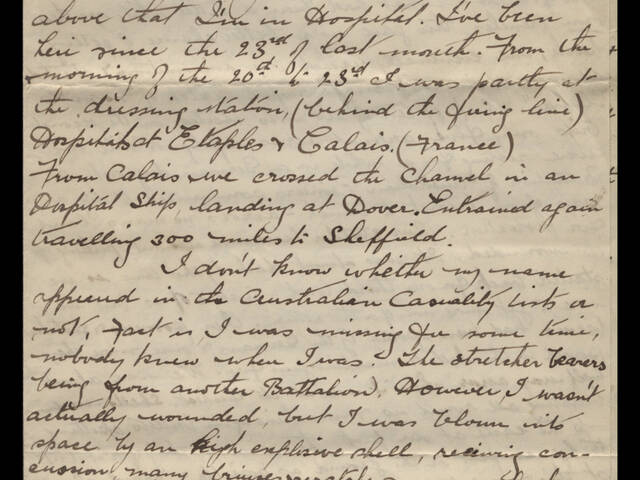 above that I'm in Hospital. I've been
here since the 23rd of last month. From the
morning of the 20th to 23rd I was partly at
the dressing station, (behind the firing line)
Hospitals at Etaples & Calais. (France)
From Calais we crossed the Channel in an
Hospital Ship, landing at Dover. Entrained again
travelling 300 miles to Sheffield.
I don't know whether my name
appeared in the Australian Casuality lists or
not, Fact is I was missing for some time,
nobody knew where I was. The stretcher bearers
being from another Battalion). However, I wasn't
actually wounded, but I was blown into
space by an high explosive shell, receiving con-
cussion, many bruises